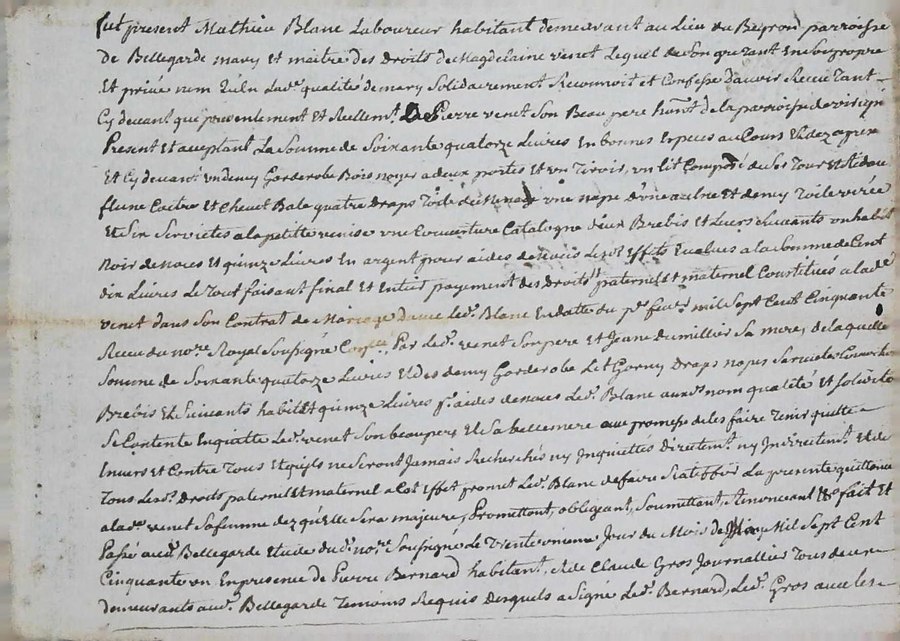 fut present Mathieu Blanc Laboureur habitant demeurant au Lieu du Beyron parroisse
de Bellegarde mary et maitre des Droits de Magdelaine venet Lequel de Son gré tant en son propre
Et privé nom qu'en Lad.e qualité de mary Solidairement Reconnoit et Confesse d'avoir Receu tant
Cy devant que presentement Et Reellem.t De Pierre venet Son Beau pere de la parroisse de
Present Et aceptant La Somme de Soixante quatorze Livres En bonnes Especes au Cours
Et Cy devant un demy Garderobe Bois noyer a deux portes Et un Tiroir, un Lit Composé de Son Tour
flune Coitre Et Chevet Bale quatre Draps Toile de une nape d'une aulne Et demy Toile
Et Six Servietes a la petitte venise une Couverture Catalogne deux Brebis Et Leurs Suivants un habit
Noir de noces Et quinze Livres En argent pour aides de noces Lesd.t Effets Evalués a la Somme de Cent
dix Livres Le Tout faisant final Et Entier payement des droits paternel Et maternel Constitués a lad.e
venet dans Son Contrat de Mariage d'avec Led.t Blanc En datte du p.r fev.r mil Sept Cent Cinquante
Receu du no.re Royal Soussigné Par Led.t venet Son pere Et Jeane Dumillier Sa mere, de laquelle
Somme de Soixante quatorze Livres Et des demy Garderobe Lit Garny Draps napes Serviettes Couverte
Brebis Et Suivants habit Et quinze Livres p.r aides de noces Led.t Blanc aux.d nom qualité Et solidité
Se Contente En quitte Led.t venet Son beaupere Et Sa bellemere avec promesse de les faire Tenir quitte
Envers et Contre Tous Et qu'ils ne Seront Jamais Recherchés ny Inquiettés Directem.t ny Indirectem.t Et de
Tous Lesd.t Droits paternel Et maternel a Cet Effet promet Led.t Blanc de faire Ratiffier La presente quittance
a lad.e venet Sa femme dez qu'elle Sera majeure, Promettant, obligeant, Soumettant, Renonceant &.a fait Et
Passé aud.t Bellegarde Etude du d.t no.re Soussigné Le Trente unieme Jour du Mois de Mil Sept Cent
Cinquante un En presence de Pierre Bernard habitant, Et de Claude Gros Journallier Tous deux
demeurants aud.t Bellegarde Temoins Requis Desquels a Signé Led.t Bernard, Led.t Gros avec les